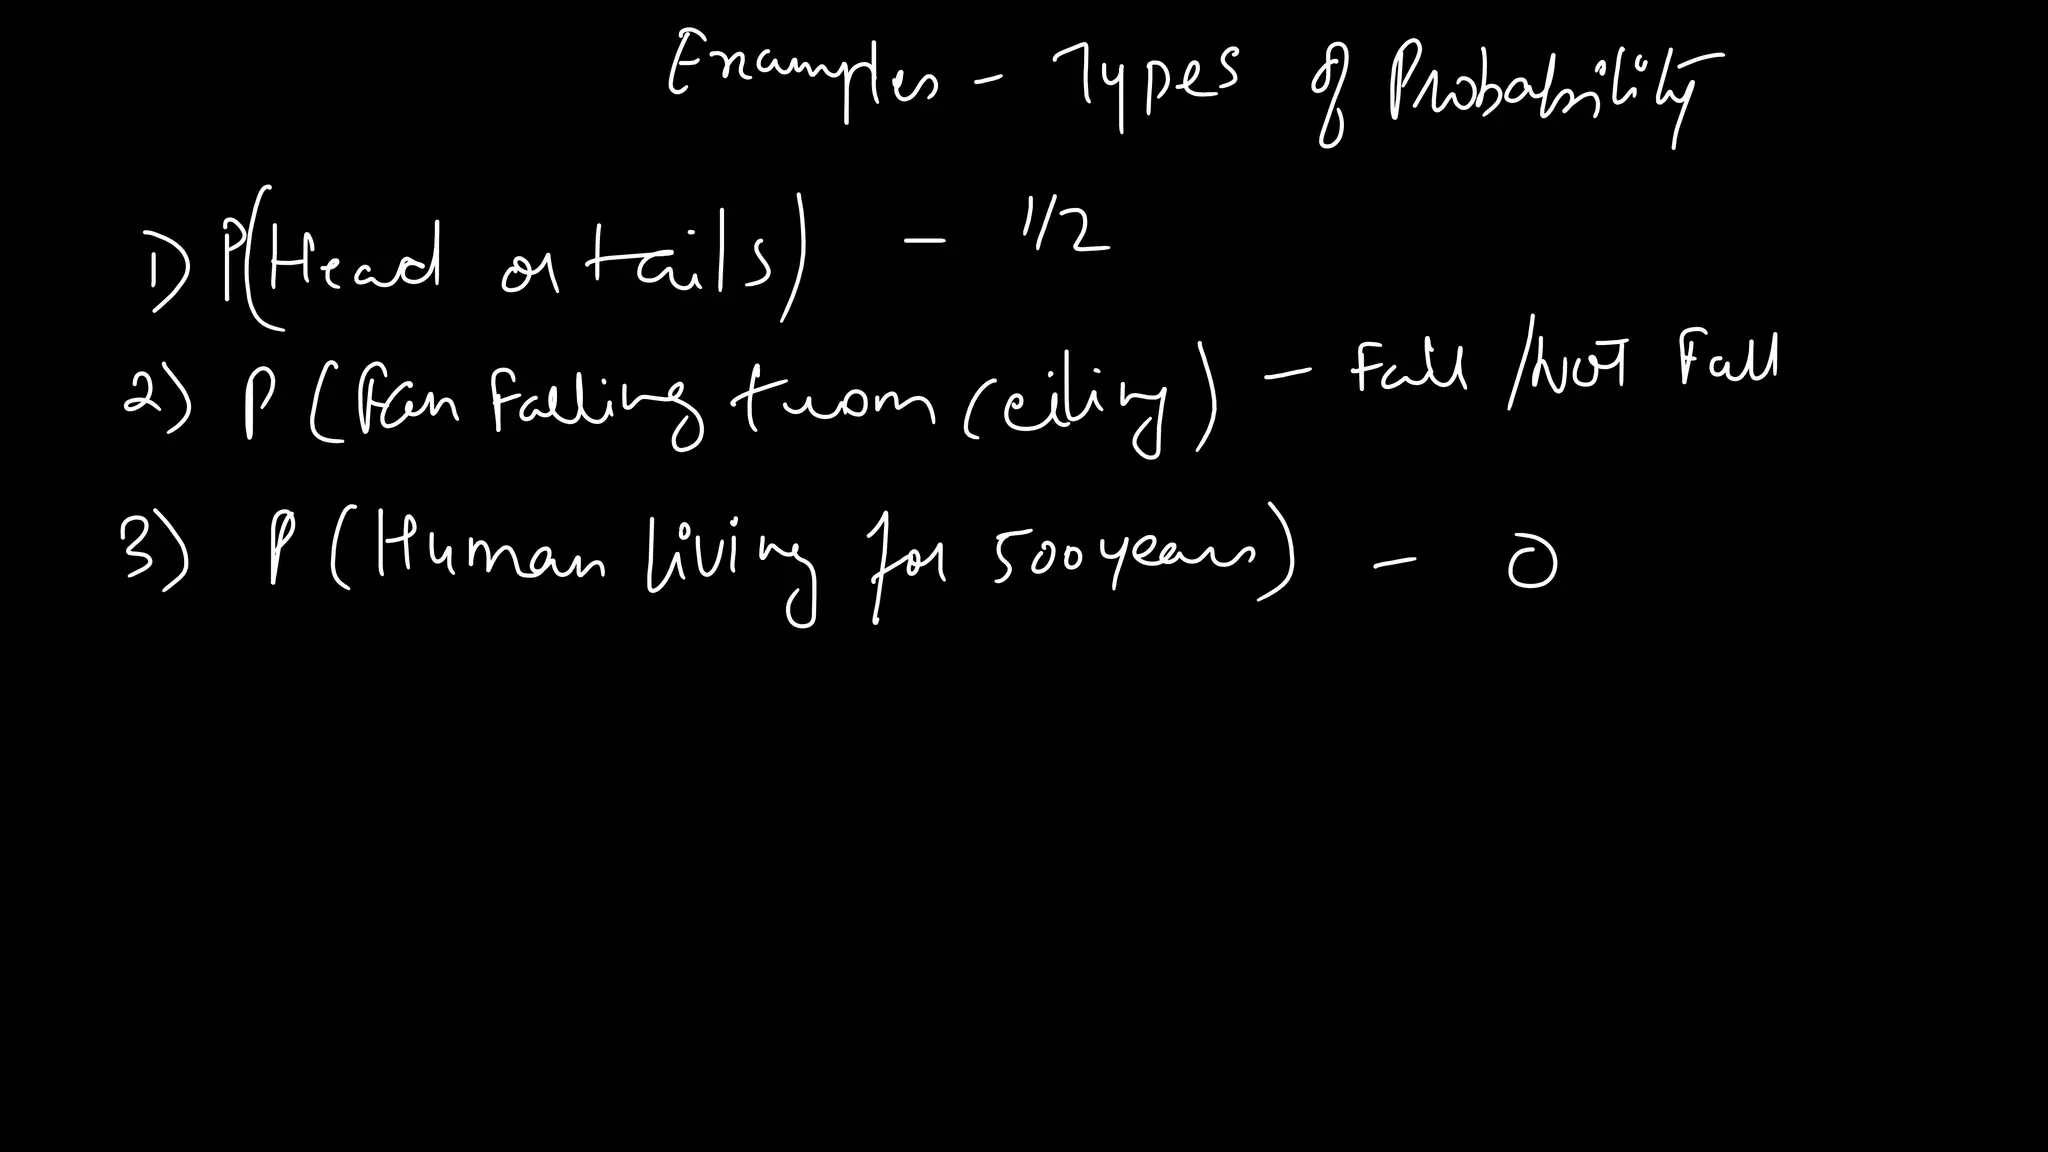 Examples - Types of Probability
1) P(Head or tails) - 1/2
2) P (Fan Falling from Ceiling) - Fall / NOT Fall
3) P (Human living for 500 years) - 0